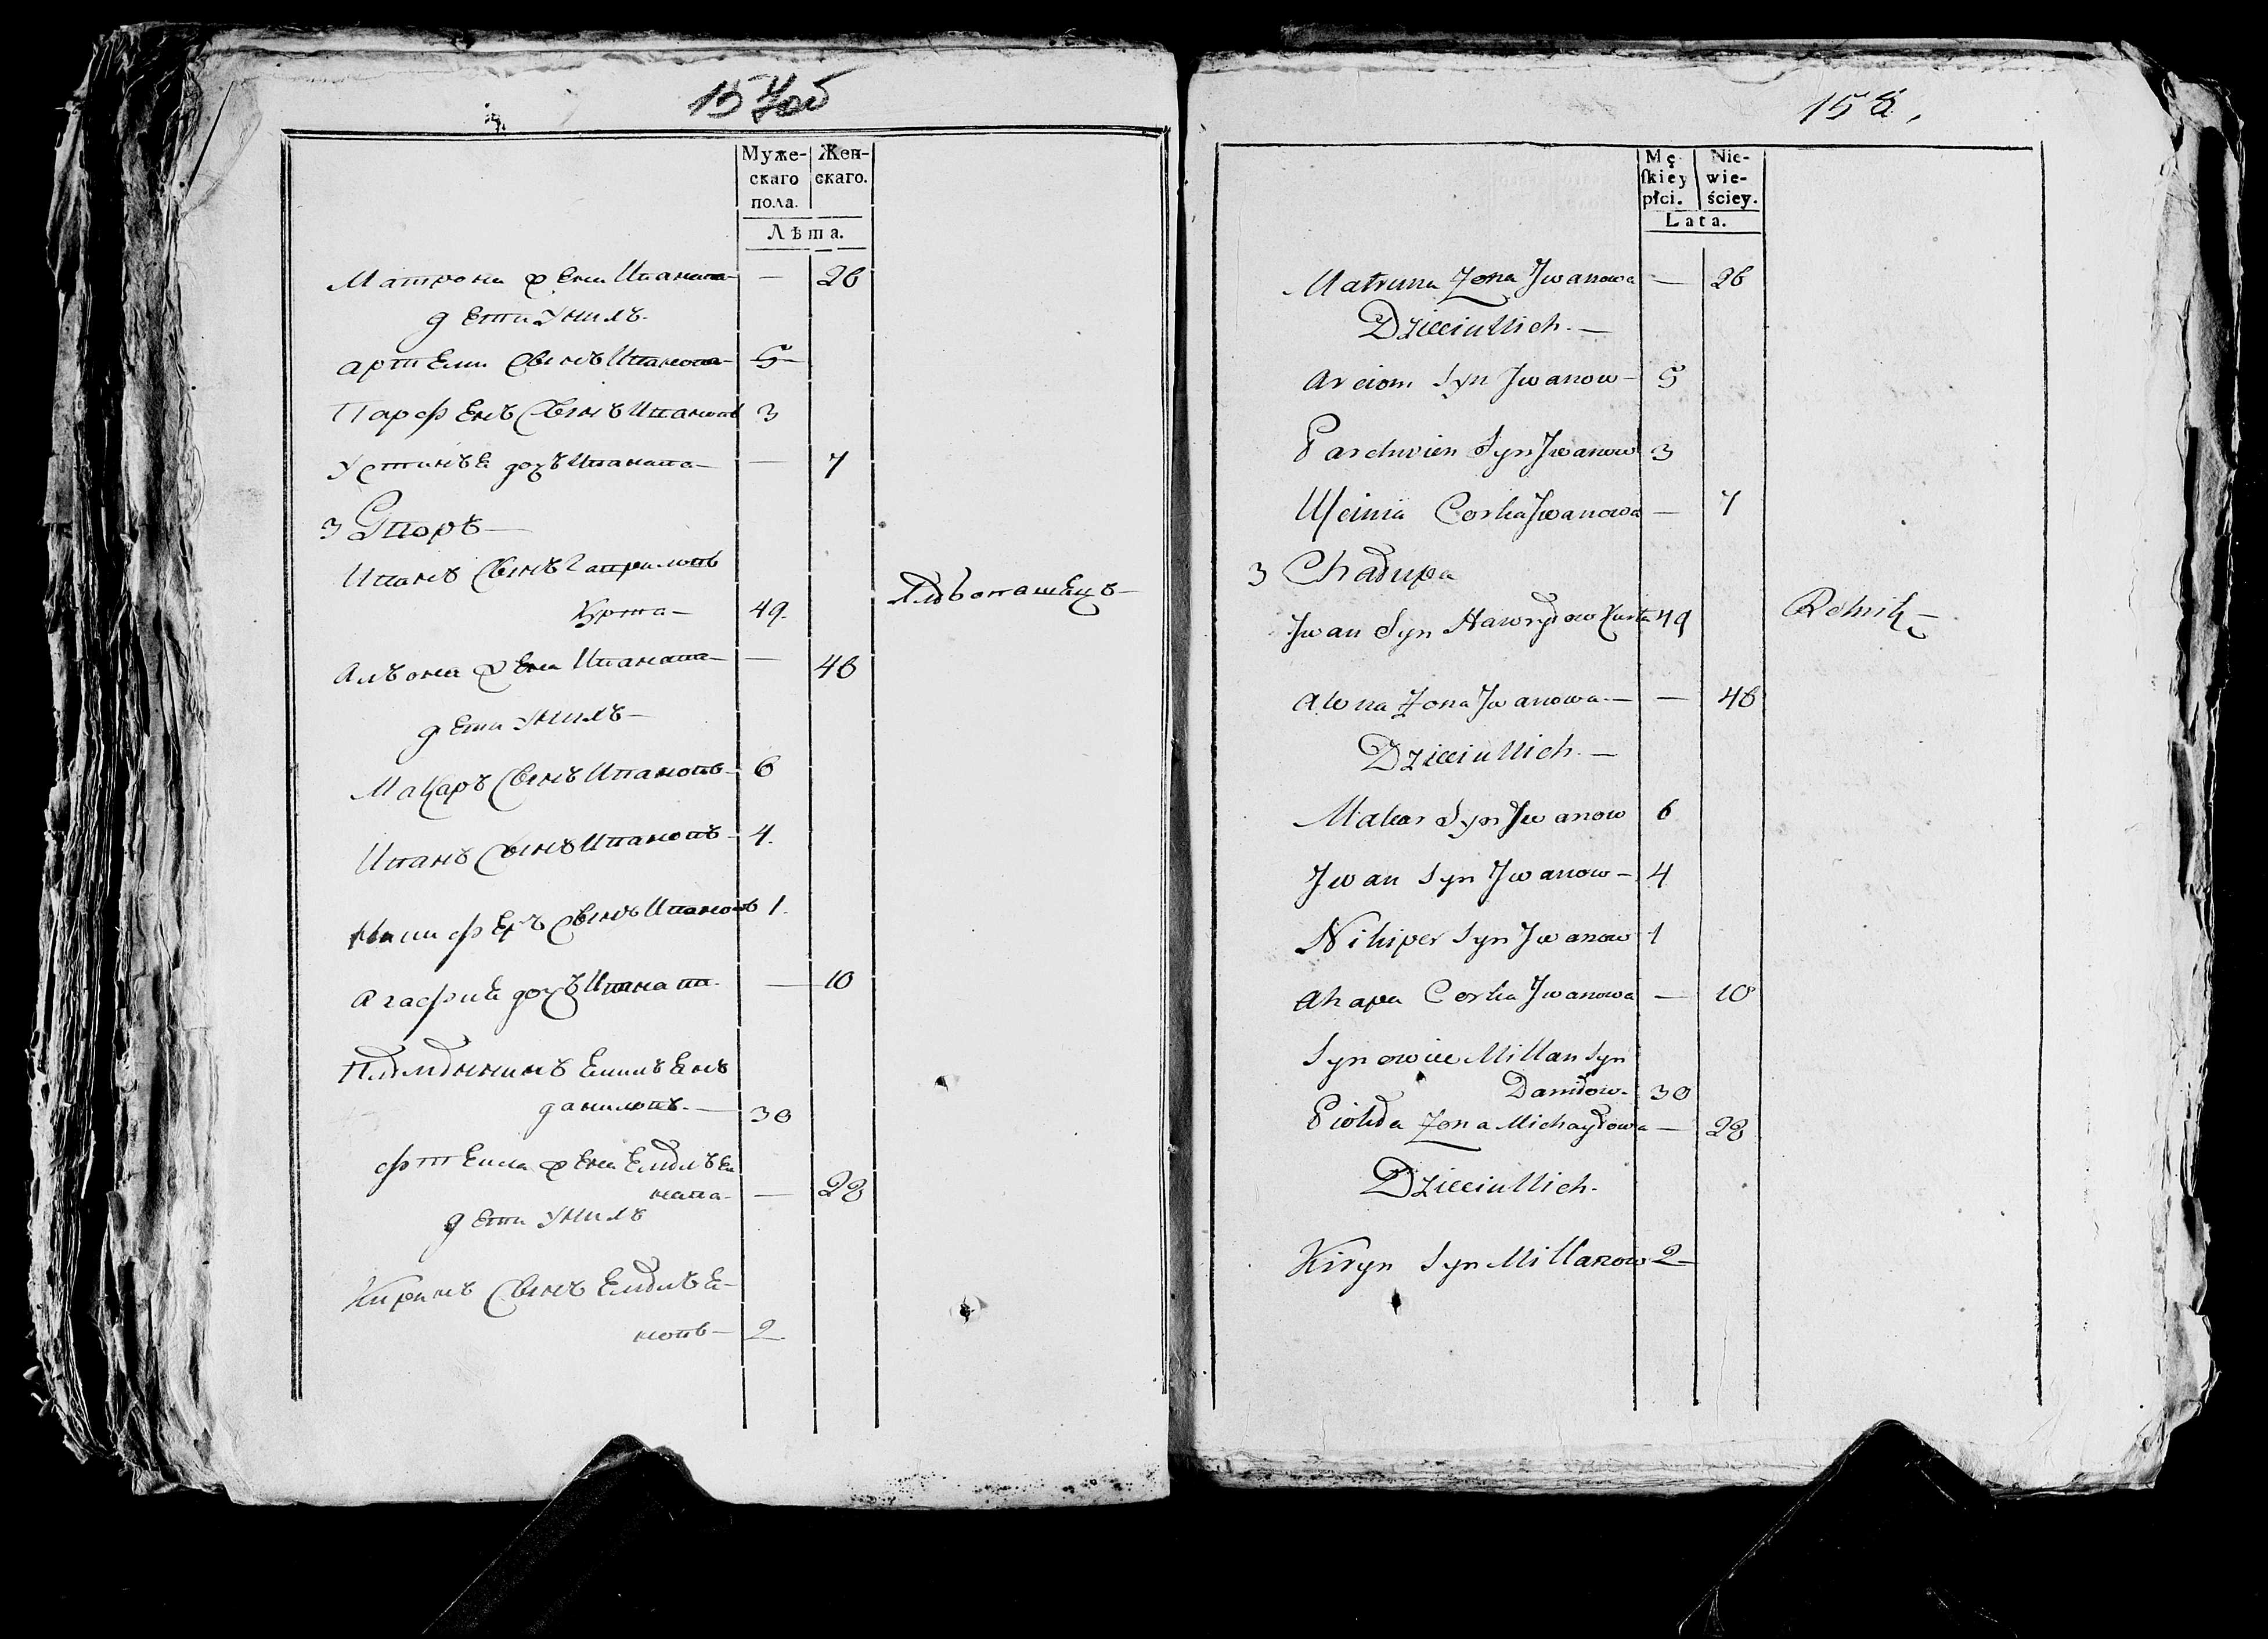 157об
Муже-
скаго
пола.
Жен-
скаго.
Лѣта.
Матрона жена Иванова — 26
дети унихъ
Артеми сынъ Ивановъ 5
Парфенъ сынъ Ивановъ 3
Устинья дочь Иванова — 7
3 Дворъ —
Иванъ сынъ Гавриловъ
Курта — 49. Хлебопашецъ —
Алѣона жена Иванова — 46
дети унихъ —
Макаръ сынъ Ивановъ 6
Иванъ сынъ Ивановъ 4.
сынъ Ивановъ 1.
Агафия дочь Иванова — 10
Племянникъ
даниловъ. — 30
жена
нова — 28
дети унихъ
Кирилъ сынъ
новъ — 2
158.
Mę-
skiey
płci.
Nie-
wie-
ściey.
Lata.
Matruna Zona Jwanowa — 26
Dzieciu Nich. —
Arciom Syn Jwanow — 5
Parchwien Syn Jwanow 3
Uscinia Corka Jwanowa — 7
3 Chadupa
Jwan Syn Hawryłow Kurta 49 Rolnik
Alona Zona Jwanowa — — 46
Dzieciu Nich. —
Makar Syn Jwanow 6
Jwan Syn Jwanow — 4
Nikiper Syn Jwanow 1
Ahapa Corka Jwanowa — 10
Synowiec Millan Syn
Daniłow. 30
Zona Michayłowa — 28
Dzieciu Nich.
Kiryn Syn Millanow 2